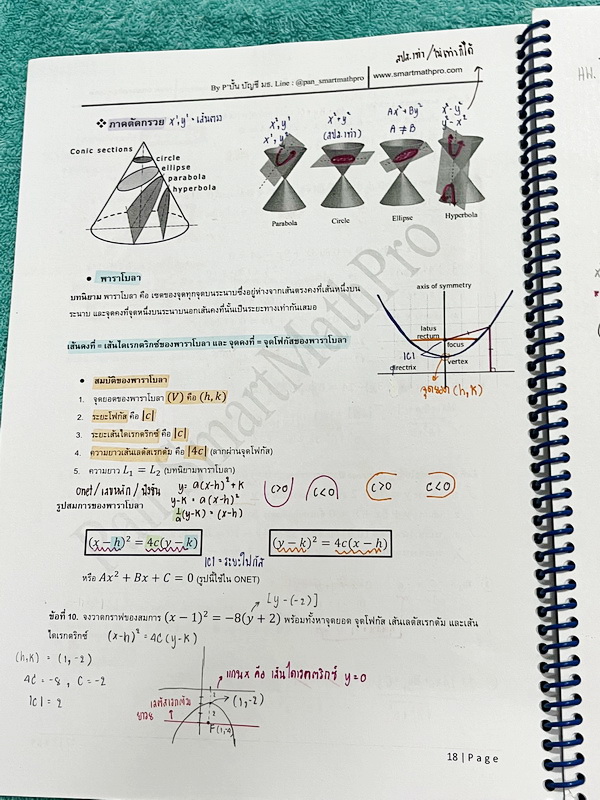 สปส.เท่า / ไม่เท่าก็ได้
By P'ปั้น บัญชี มธ. Line : @pan_smartmathpro | www.smartmathpro.com
❖ ภาคตัดกรวย x¹,y¹ = เส้นตรง
x²,y¹
x¹,y²
x²+y²
(สปส.เท่า)
Ax²+By²
A ≠ B
x²-y²
y²-x²
Conic sections
circle
ellipse
parabola
hyperbola
Parabola Circle Ellipse Hyperbola
• พาราโบลา
บทนิยาม พาราโบลา คือ เซตของจุดทุกจุดบนระนาบซึ่งอยู่ห่างจากเส้นตรงคงที่เส้นหนึ่งบน
ระนาบ และจุดคงที่จุดหนึ่งบนระนาบนอกเส้นคงที่นั้นเป็นระยะทางเท่ากันเสมอ
เส้นคงที่ = เส้นไดเรกตริกซ์ของพาราโบลา และ จุดคงที่ = จุดโฟกัสของพาราโบลา
axis of symmetry
latus
rectum
focus
|c|
vertex
directrix
จุดยอด (h,k)
• สมบัติของพาราโบลา
1. จุดยอดของพาราโบลา (V) คือ (h, k)
2. ระยะโฟกัส คือ |c|
3. ระยะเส้นไดเรกตริกซ์ คือ |c|
4. ความยาวเส้นเลตัสเรกตัม คือ |4c| (ลากผ่านจุดโฟกัส)
5. ความยาว L₁ = L₂ (บทนิยามพาราโบลา)
Onet/เลขหลัก/ฟังชัน y = a(x-h)²+k
y-k = a(x-h)²
1/a(y-k) = (x-h)
c>0 c<0 c>0 c<0
รูปสมการของพาราโบลา
(x − h)² = 4c(y − k) (y − k)² = 4c(x − h)
|c| = ระยะโฟกัส
หรือ Ax² + Bx + C = 0 (รูปนี้ใช้ใน ONET)
[y-(-2)]
ข้อที่ 10. จงวาดกราฟของสมการ (x − 1)² = −8(y + 2) พร้อมทั้งหาจุดยอด จุดโฟกัส เส้นเลตัสเรกตัม และเส้น
ไดเรกตริกซ์ (x-h)² = 4c(y-k)
(h,k) = (1,-2)
4c = -8 , c = -2
|c| = 2
แกน x คือ เส้นไดเรกตริกซ์ y=0
(1,-2)
เลตัสเรกตัม
F(1,-4)
18 | P a g e
HW.
PanSmartMathPro